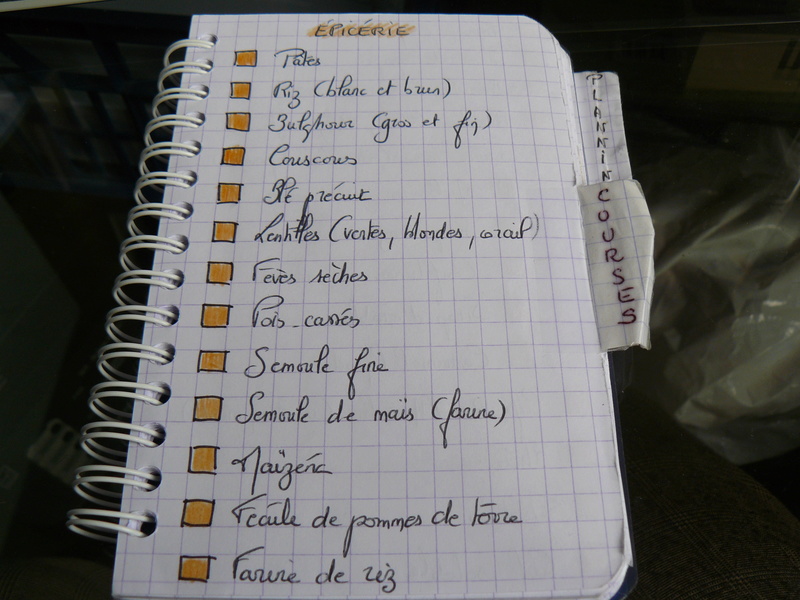 ÉPICERIE
Pâtes
Riz (blanc et brun)
Bulghour (gros et fin)
Couscous
Blé précuit
Lentilles (vertes, blondes, corail)
Feves sèches
Pois-cassés
Semoule fine
Semoule de maïs (farine)
Maïzena
Fécule de pommes de terre
Farine de riz
PLANNIN
COURSES